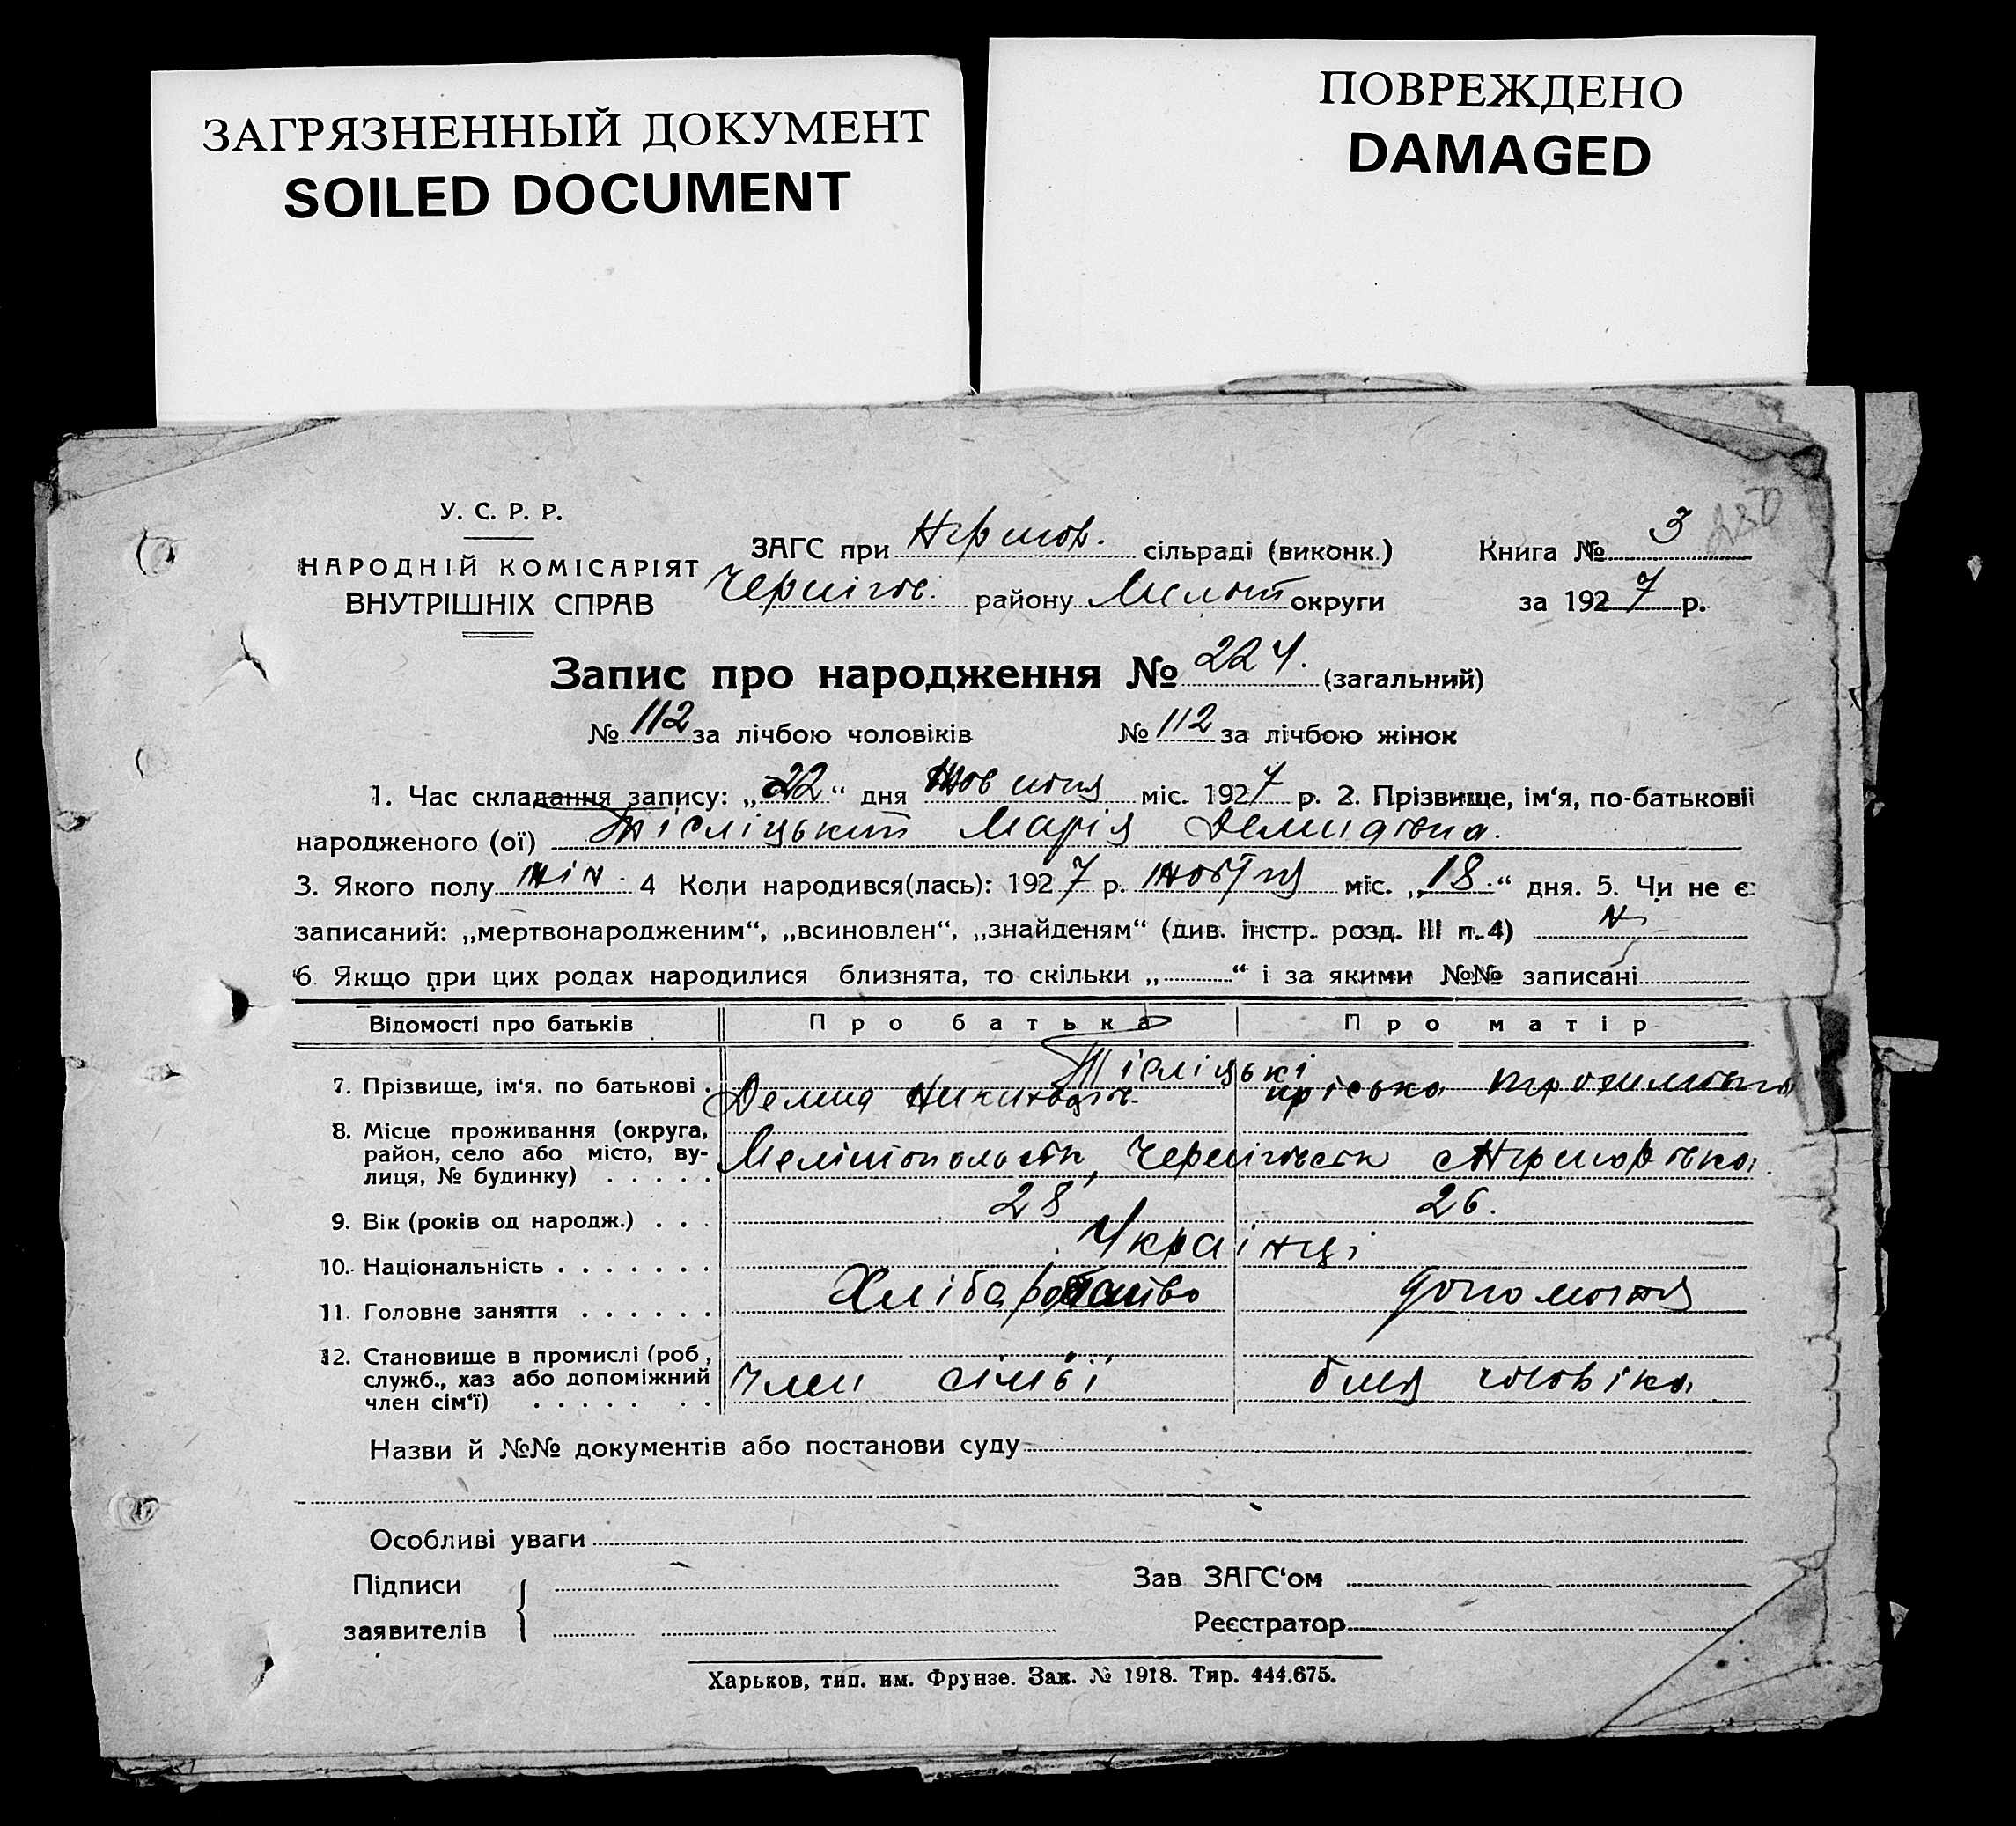 ЗАГРЯЗНЕННЫЙ ДОКУМЕНТ
SOILED DOCUMENT
ПОВРЕЖДЕНО
DAMAGED
У. С. Р. Р.
НАРОДНІЙ КОМІСАРІЯТ
ВНУТРІШНІХ СПРАВ
ЗАГС при сільраді (виконк.)
Книга № 3
Чернігов. району Меліт округи
за 1927 р.
Запис про народження № 224. (загальний)
№ 112 за лічбою чоловіків № 112 за лічбою жінок
1. Час складання запису: „22“ дня Жовтня міс. 1927 р. 2. Прізвище, ім‘я, по-батькові
народженого (ої) Тісліцький Марія Демидовна.
3. Якого полу жін. 4 Коли народився(лась): 1927 р. жовтня міс. „18.“ дня. 5. Чи не є
записаний: „мертвонародженим“, „всиновлен“, „знайденям“ (див. інстр. розд. III п. 4)
6 Якщо при цих родах народилися близнята, то скільки „ “ і за якими №№ записані
Відомості про батьків Про батька Про матір
7. Прізвище, ім‘я, по батькові . Тісліцькі
Демид Никитович. Пріська Трохимовна
8. Місце проживання (округа,
район, село або місто, ву-
лиця, № будинку) . . . . . Мелітопольськ, Черніговськ
9. Вік (років од народж.) . . . 28 26.
10. Національність . . . . . . . Українці
11. Головне заняття . . . . . . Хліборобство допомогня
12. Становище в промислі (роб.,
служб., хаз або допоміжний
член сім‘ї) . . . . . . . Член сімьї біля чоловіка
Назви й №№ документів або постанови суду
Особливі уваги
Підписи
заявителів
Зав ЗАГС‘ом
Реєстратор
Харьков, тип. им. Фрунзе. Зак. № 1918. Тир. 444.675.